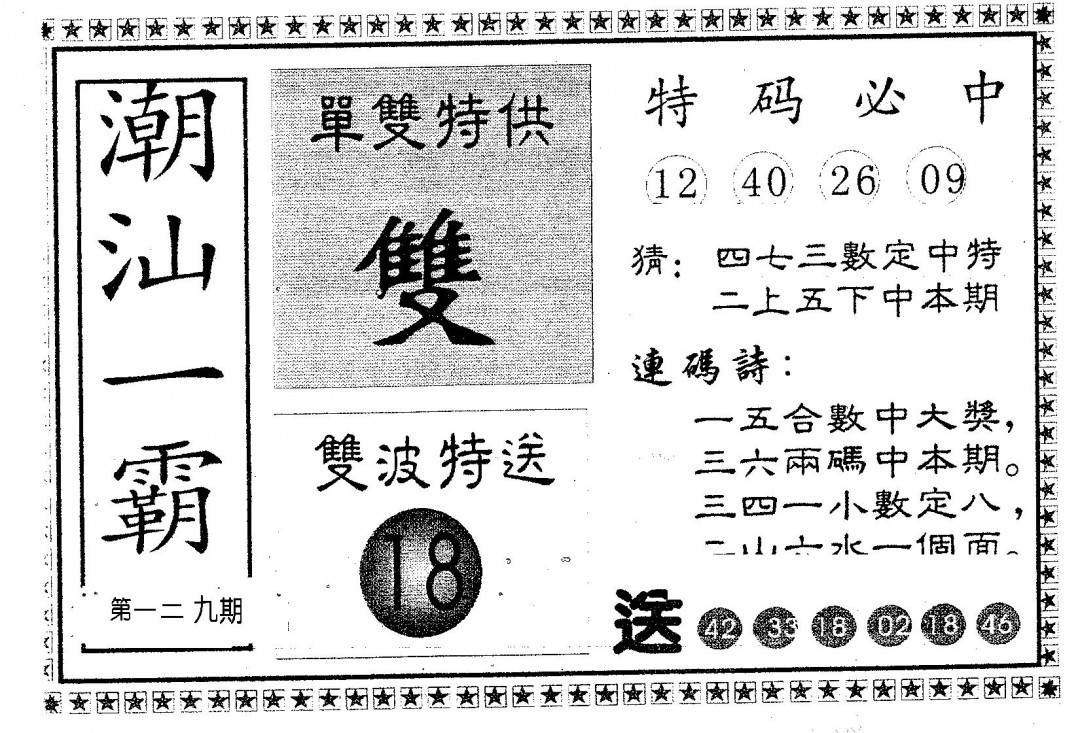 潮汕一霸
第一二九期
單雙特供
雙
雙波特送
18
特码必中
12 40 26 09
猜：四七三數定中特
二上五下中本期
連碼詩：
一五合數中大獎，
三六兩碼中本期。
三四一小數定八，
二山六水一個面。
送 42 33 18 02 18 46